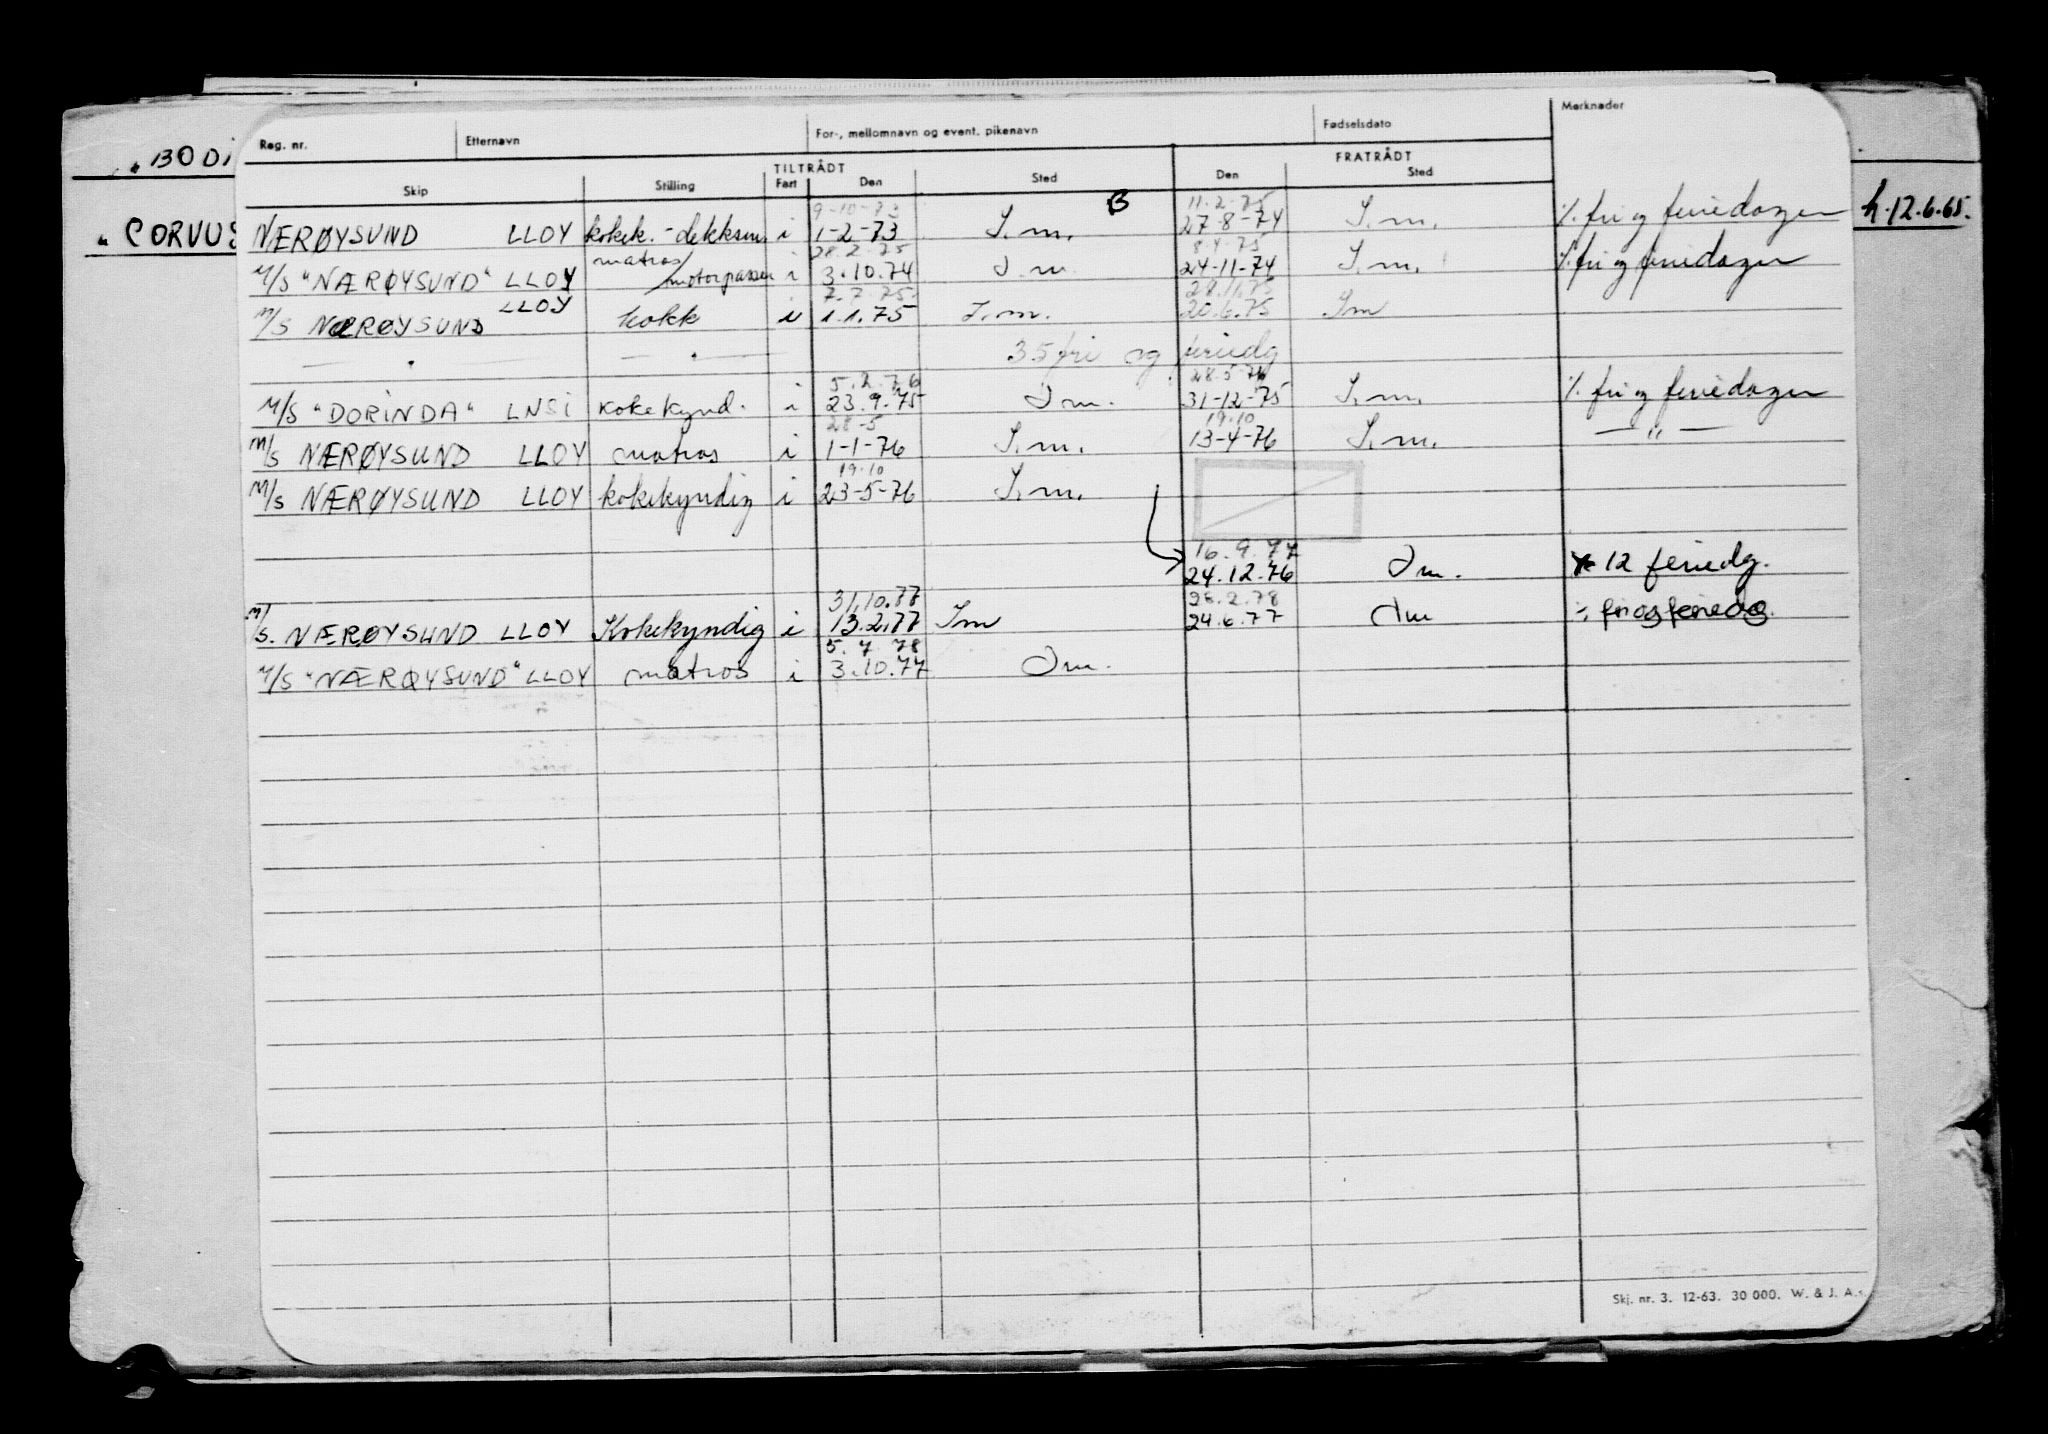 Reg. nr. Etternavn For-, mellomnavn og event. pikenavn Fødselsdato Merknader
TILTRÅDT FRATRÅDT
Skip Stilling Fart Den Sted Den Sted
" BODI
B
9-10-73 11-2-75
" CORVUS NÆRØYSUND LLOY kokek.-dekksm. i 1-2-73 I.m. 27-8-74 I.m. % fri og feriedager h. 12.6.65.
matros/ 28.2.75 8.4.75
M/S "NÆRØYSUND" LLOY motorpasser i 3.10.74 I.m. 24-11-74 I.m. % fri og feriedager
LLOY 7.7.75 28.11.75
M/S NÆRØYSUND kokk i 1.1.75 I.m. 20.6.75 Im
— " — — " — 35 fri og feriedg
5.2.76 28.5.76
M/S "DORINDA" LNSI kokekynd. i 23.9.75 Im. 31-12-75 I.m. % fri og feriedager
28-5 19.10
M/S NÆRØYSUND LLOY matros i 1-1-76 I.m. 13-4-76 I.m. — " —
19.10
M/S NÆRØYSUND LLOY kokekyndig i 23-5-76 I.m.
16.9.77
24.12.76 Im. 12 feriedg.
31.10.77 28.2.78
M/S. NÆRØYSUND LLOY Kokekyndig i 13.2.77 Im 24.6.77 Im fri og feriedg.
5.7.78
M/S "NÆRØYSUND" LLOY matros i 3.10.77 Im.
Skj. nr. 3. 12-63. 30 000. W. & J. A.s.